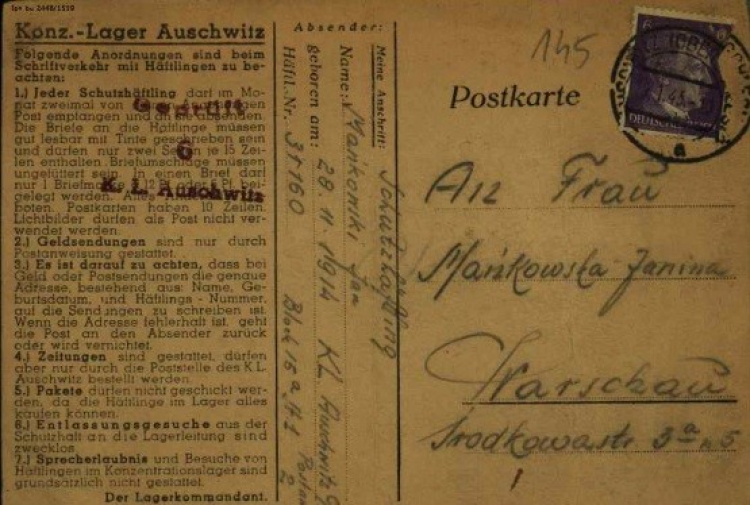 Konz.-Lager Auschwitz
Folgende Anordnungen sind beim
Schriftverkehr mit Häftlingen zu be-
achten:
1.) Jeder Schutzhäftling darf im Mo-
nat zweimal von
Post empfangen und an sie absenden.
Die Briefe an die Häftlinge müssen
gut lesbar mit Tinte geschrieben sein
und dürfen nur zwei Seiten 15 Zei-
len enthalten. Briefumschläge müssen
ungefüttert sein. In einen Brief darf
nur 1 Briefmarke 12 Pf. bei-
gelegt werden. Alles
boten. Postkarten haben 10 Zeilen.
Lichtbilder dürfen als Post nicht ver-
wendet werden.
2.) Geldsendungen sind nur durch
Postanweisung gestattet.
3.) Es ist darauf zu achten, dass bei
Geld oder Postsendungen die genaue
Adresse, bestehend aus: Name, Ge-
burtsdatum, und Häftlings - Nummer,
auf die Sendungen zu schreiben ist.
Wenn die Adresse fehlerhaft ist, geht
die Post an den Absender zurück
oder wird vernichtet.
4.) Zeitungen sind gestattet, dürfen
aber nur durch die Poststelle des K.L.
Auschwitz bestellt werden.
5.) Pakete dürfen nicht geschickt wer-
den, da die Häftlinge im Lager alles
kaufen können.
6.) Entlassungsgesuche aus der
Schutzhaft an die Lagerleitung sind
zwecklos.
7.) Sprecherlaubnis und Besuche von
Häftlingen im Konzentrationslager sind
grundsätzlich nicht gestattet.
Der Lagerkommandant.
6
K. L. Auschwitz
Absender:
Meine Anschrift: Schutzhäftling
Name: Mańkowski Jan
geboren am: 28. 11. 1914 KL. Auschwitz
Häftl.-Nr. 31160 Block 15a
145
Postkarte
6
DEUTSCHES REICH
a
An Frau
Mańkowska Janina
Warschau
Srodkowastr 3a n 5